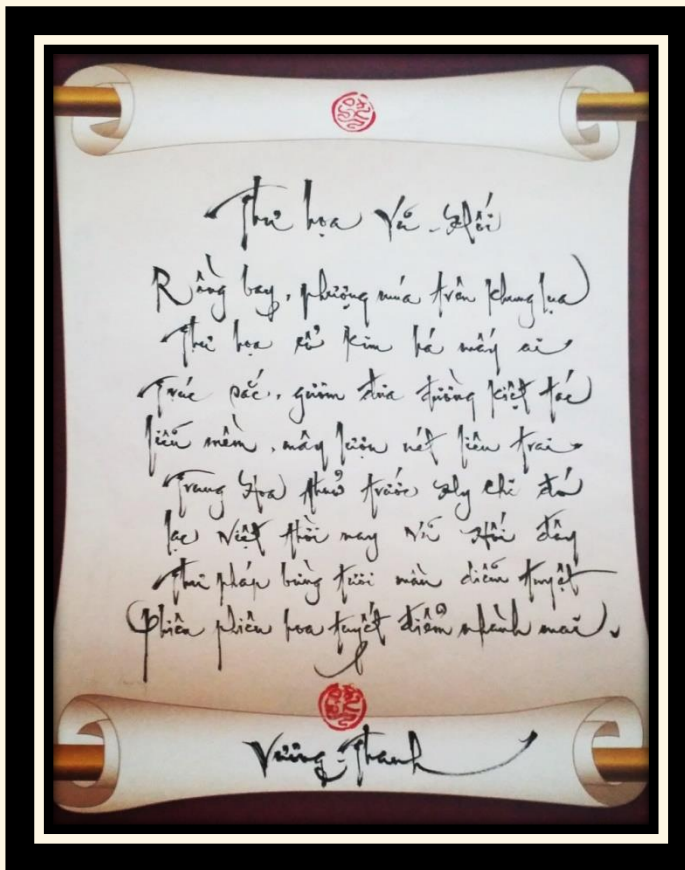 Thư họa Vũ-Hối
Rồng bay, phượng múa trên khung lụa
Thư họa cổ kim há mấy ai
Trúc sắc, gươm đưa đường kiệt tác
liễu mềm, mây lượn nét liêu trai
Trung Hoa thuở trước Hy Chi đó
lạc Việt thời nay Vũ Hối đây
Thư pháp bừng tươi màn diễm tuyệt
Phiêu phiêu hoa tuyết điểm nhành mai.
Vương-Thanh